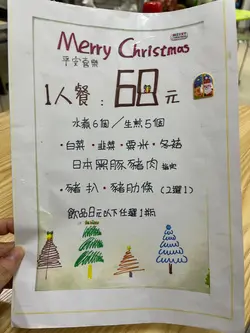 Merry Christmas
平安喜樂
1人餐：60元
水煮6個／生煎5個
·白菜·韭菜·粟米·冬菇
日本黑豚豬肉
·豬扒·豬肋條（2選1）
飲品8元以下任選1瓶